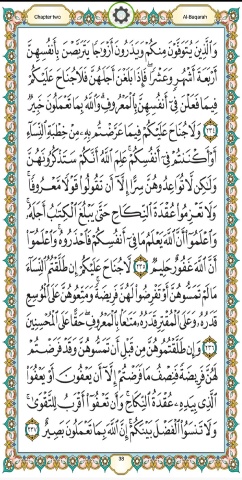 Chapter two
Al-Baqarah
وَالَّذِينَ يُتَوَفَّوْنَ مِنكُمْ وَيَذَرُونَ أَزْوَاجًا يَتَرَبَّصْنَ بِأَنفُسِهِنَّ
أَرْبَعَةَ أَشْهُرٍ وَعَشْرًا ۖ فَإِذَا بَلَغْنَ أَجَلَهُنَّ فَلَا جُنَاحَ عَلَيْكُمْ
فِيمَا فَعَلْنَ فِي أَنفُسِهِنَّ بِالْمَعْرُوفِ ۗ وَاللَّهُ بِمَا تَعْمَلُونَ خَبِيرٌ
﴿٢٣٤﴾ وَلَا جُنَاحَ عَلَيْكُمْ فِيمَا عَرَّضْتُم بِهِ مِنْ خِطْبَةِ النِّسَاءِ
أَوْ أَكْنَنتُمْ فِي أَنفُسِكُمْ ۚ عَلِمَ اللَّهُ أَنَّكُمْ سَتَذْكُرُونَهُنَّ
وَلَٰكِن لَّا تُوَاعِدُوهُنَّ سِرًّا إِلَّا أَن تَقُولُوا قَوْلًا مَّعْرُوفًا ۚ
وَلَا تَعْزِمُوا عُقْدَةَ النِّكَاحِ حَتَّىٰ يَبْلُغَ الْكِتَابُ أَجَلَهُ ۚ
وَاعْلَمُوا أَنَّ اللَّهَ يَعْلَمُ مَا فِي أَنفُسِكُمْ فَاحْذَرُوهُ ۚ وَاعْلَمُوا
أَنَّ اللَّهَ غَفُورٌ حَلِيمٌ ﴿٢٣٥﴾ لَّا جُنَاحَ عَلَيْكُمْ إِن طَلَّقْتُمُ النِّسَاءَ
مَا لَمْ تَمَسُّوهُنَّ أَوْ تَفْرِضُوا لَهُنَّ فَرِيضَةً ۚ وَمَتِّعُوهُنَّ عَلَى الْمُوسِعِ
قَدَرُهُ وَعَلَى الْمُقْتِرِ قَدَرُهُ مَتَاعًا بِالْمَعْرُوفِ ۖ حَقًّا عَلَى الْمُحْسِنِينَ
﴿٢٣٦﴾ وَإِن طَلَّقْتُمُوهُنَّ مِن قَبْلِ أَن تَمَسُّوهُنَّ وَقَدْ فَرَضْتُمْ
لَهُنَّ فَرِيضَةً فَنِصْفُ مَا فَرَضْتُمْ إِلَّا أَن يَعْفُونَ أَوْ يَعْفُوَا
الَّذِي بِيَدِهِ عُقْدَةُ النِّكَاحِ ۚ وَأَن تَعْفُوا أَقْرَبُ لِلتَّقْوَىٰ ۚ
وَلَا تَنسَوُا الْفَضْلَ بَيْنَكُمْ ۚ إِنَّ اللَّهَ بِمَا تَعْمَلُونَ بَصِيرٌ ﴿٢٣٧﴾
38